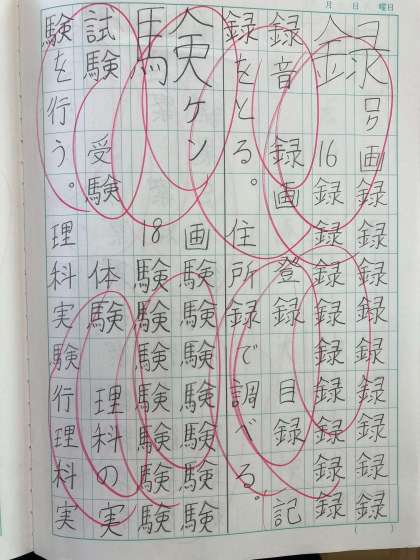 月 日 曜日
録
ロク
16画
録録録録録録録録録
録録録録録録録録録
録音 録画 登録 目録 記
録をとる。住所録で調べる。
験
ケン
18画
験験験験験験験
験験験験験験験
試験 受験 体験 理科の実
験を行う。理科実験行理科実